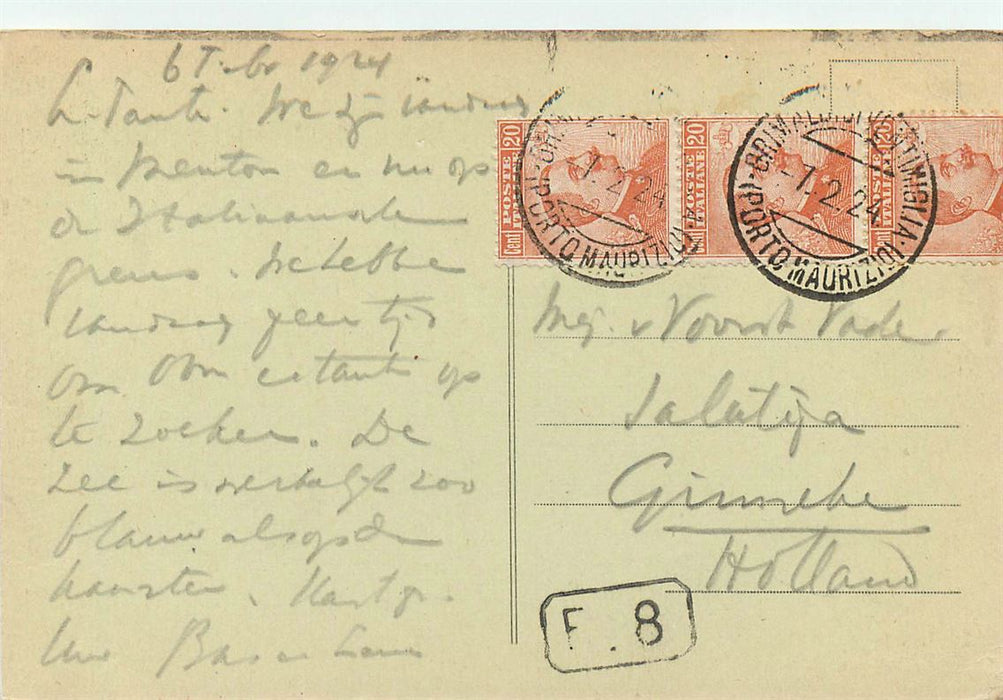 6 Febr 1924
L. Tante. We zijn vandaag
in Menton en nu op
de Italiaansche
grens. We hebben
vandaag geen tijd
om Oom en tante op
te zoeken. De
zee is werkelijk zoo
blauw als op de
kaarten. Hart. gr.
Uw Bas en
CENT 20
POSTE ITALIANE
20
POSTE ITALIANE
Cent 20
POSTE ITALIANE
GRIMALDI DI VENTIMIGLIA
-7.2.24
(PORTO MAURIZIO)
-7.2.24
(PORTO MAURIZIO)
Mej. v Voorst Vader
Salatiga
Holland
F. 8